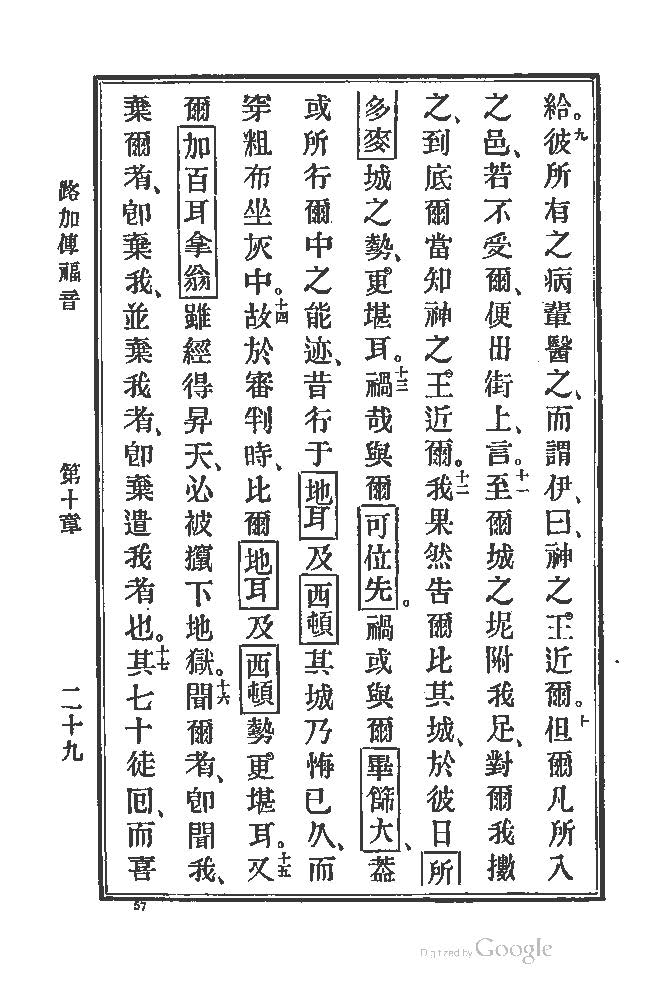 給。九彼所有之病輩醫之、而謂伊、曰、神之王近爾。十但爾凡所入
之邑、若不受爾、便出街上、言。十一至爾城之坭附我足、對爾我擻
之、到底爾當知神之王近爾。十二我果然告爾比其城、於彼日所
多麥城之勢、更堪耳。十三禍哉與爾可位先。禍或與爾畢篩大、葢
或所行爾中之能迹、昔行于地耳及西頓其城乃悔已久、而
穿粗布坐灰中。十四故於審判時、比爾地耳及西頓勢更堪耳。十五又
爾加百耳拿翁雖經得昇天、必被擯下地獄。十六聞爾者、卽聞我、
棄爾者、卽棄我、並棄我者、卽棄遣我者也。十七其七十徒回、而喜
路加傳福音
第十章
二十九
57
Digitized by Google